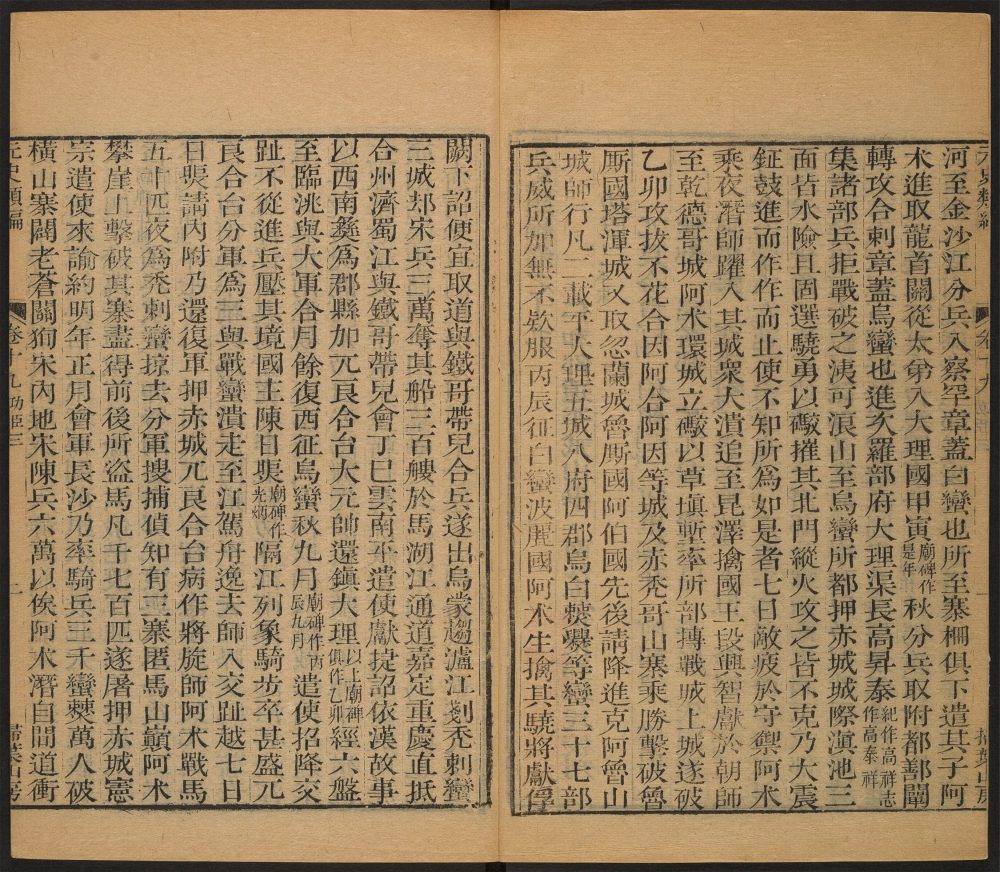 元史類編 卷十九 掃葉山房
河至金沙江分兵入察罕章蓋白蠻也所至寨柵俱下遣其子阿
朮進取龍首關從太弟入大理國甲寅廟碑作是年秋分兵取附都鄯闡
轉攻合刺章蓋烏蠻也進次羅部府大理渠長高昇泰紀作高祥志作高泰祥
集諸部兵拒戰破之洟可浪山至烏蠻所都押赤城城際滇池三
面皆水險且固選驍勇以礮摧其北門縱火攻之皆不克乃大震
鉦鼓進而作作而止使不知所爲如是者七日敵疲於守禦阿朮
乘夜潛師躍入其城衆大潰追至昆澤擒國王段興智獻於朝師
至乾德哥城阿朮環城立礮以草塡塹率所部搏戰城上城遂破
乙卯攻拔不花合因阿合阿因等城及赤禿哥山寨乘勝擊破魯
厮國塔渾城又取忽蘭城魯厮國阿伯國先後請降進克阿魯山
城師行凡二載平大理五城八府四郡烏白㒒爨等蠻三十七部
兵威所加無不欵服丙辰征白蠻波麗國阿朮生擒其驍將獻俘
闕下詔便宜取道與鐵哥帶兒合兵遂出烏蒙趨瀘江剗禿刺蠻
三城却宋兵三萬奪其船三百艘於馬湖江通道嘉定重慶直抵
合州濟蜀江與鐵哥帶兒會丁巳雲南平遣使獻捷詔依漢故事
以西南夷爲郡縣加兀良合台大元帥還鎮大理以上廟碑俱作乙卯經六盤
至臨洮與大軍合月餘復西征烏蠻秋九月廟碑作丙辰九月遣使招降交
趾不從進兵壓其境國主陳日煚廟碑作光昞隔江列象騎步卒甚盛兀
良合台分軍爲三與戰蠻潰走至江駕舟逸去師入交趾越七日
日煚請內附乃還復軍押赤城兀良合台病作將旋師阿朮戰馬
五十匹夜爲禿刺蠻掠去分軍搜捕偵知有三寨匿馬山顚阿朮
攀崖上擊破其寨盡得前後所盜馬凡千七百匹遂屠押赤城憲
宗遣使來諭約明年正月會軍長沙乃率騎兵三千蠻僰萬人破
橫山寨闢老蒼關狥宋內地宋陳兵六萬以俟阿朮潛自間道衝
元史類編 卷十九功臣三 二 掃葉山房